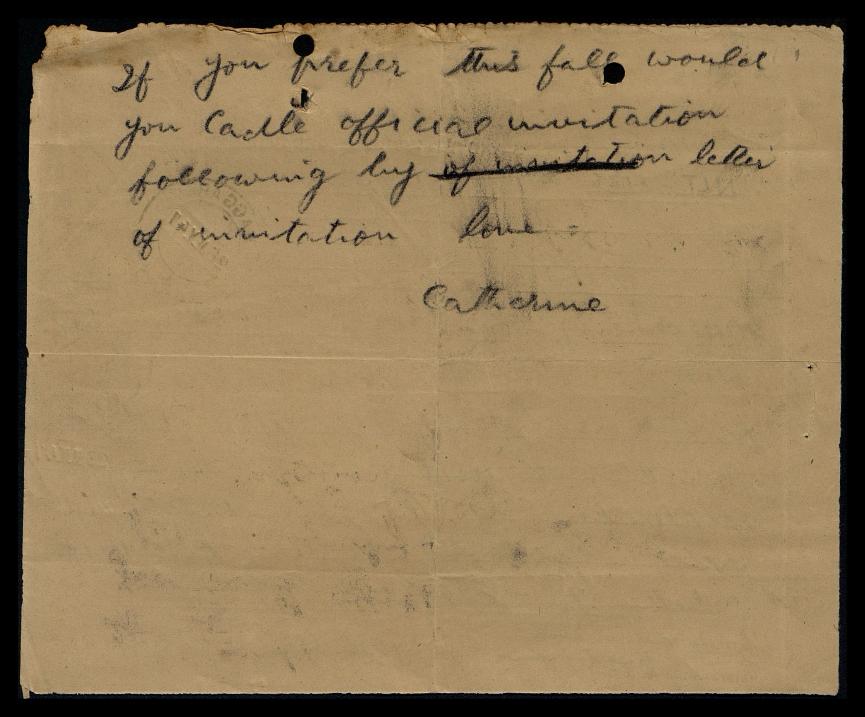 If you prefer this fall would
you Cadle official invitation
following by of invitation letter
of invitation love =
Catherine